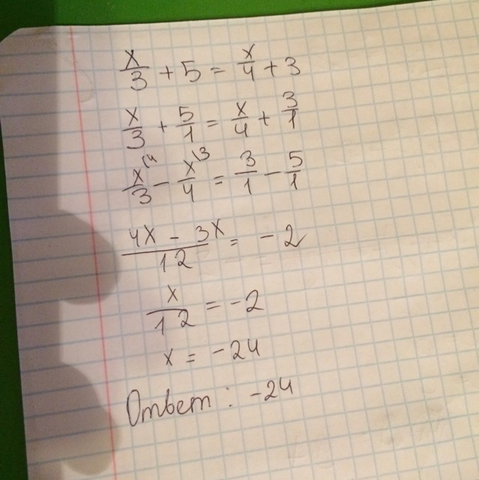 x/3 + 5 = x/4 + 3
x/3 + 5/1 = x/4 + 3/1
x^(4/3 - x^(3/4 = 3/1 - 5/1
4x - 3x/12 = -2
x/12 = -2
x = -24
Ответ: -24